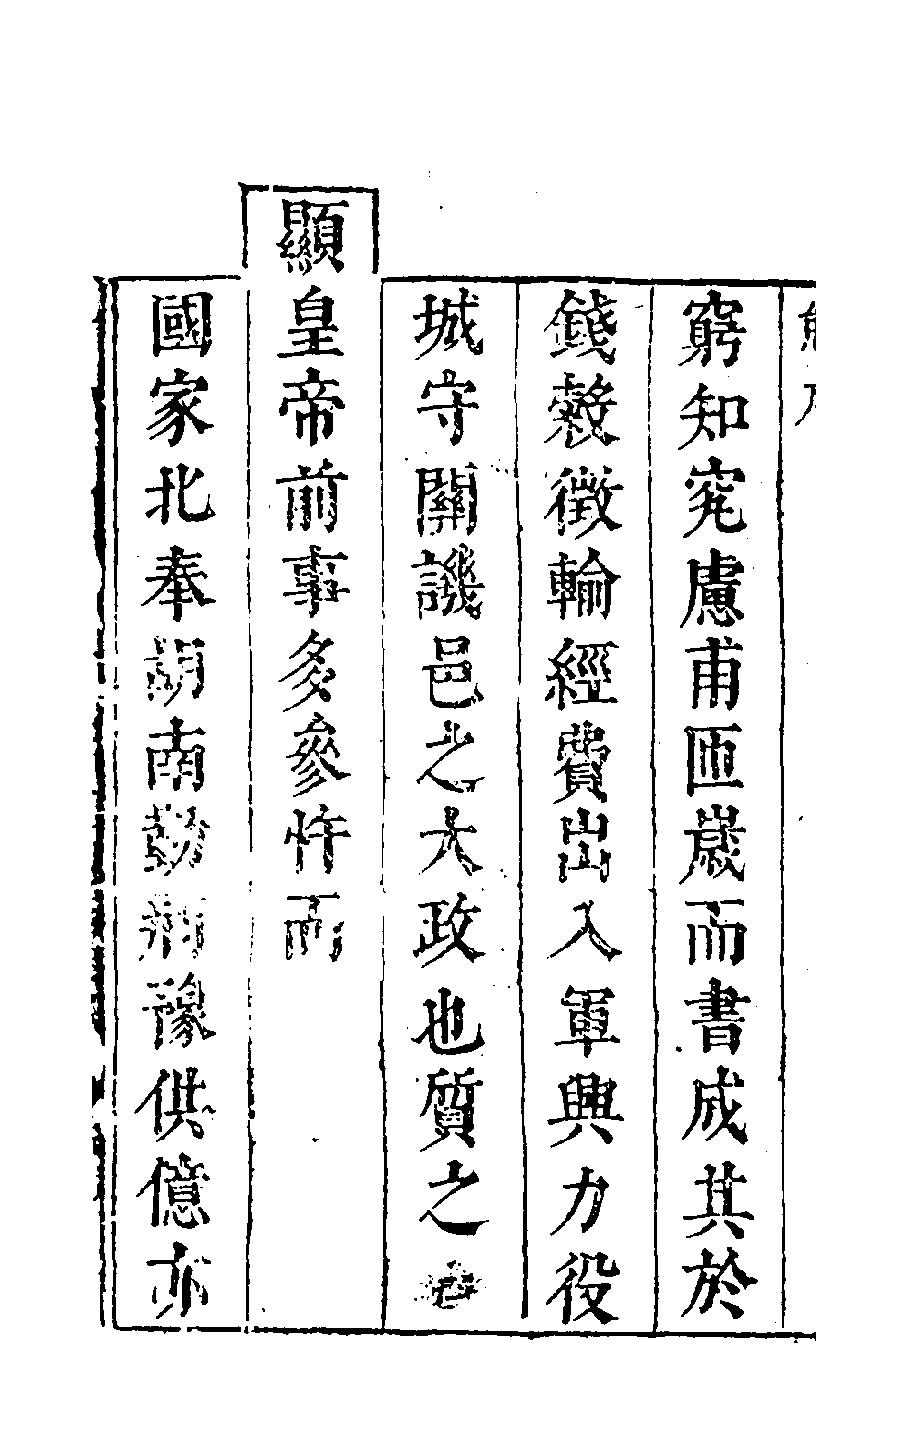 窮知究慮甫匝歲而書成其於
錢穀徵輸經費出入軍興力役
城守關譏邑之大政也質之
顯皇帝前事多參忤而
國家北奉胡南勦荊豫供億亦